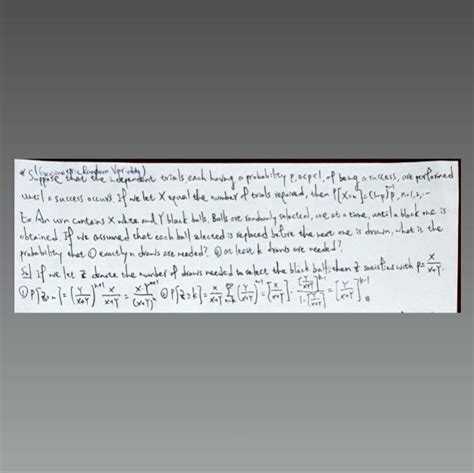 (Geometric Random Variable)
* Suppose that the independent trials each having a probability p, 0<p<1, of being a success, are performed
until a success occurs. If we let X equal the number of trials required, then P[X=n]=(1-p)^{n-1}p, n=1,2,...
Ex. An urn contains X white and Y black balls. Balls are randomly selected, one at a time, until a black one is
obtained. If we assumed that each ball selected is replaced before the next one is drawn, what is the
probability that ① exactly n draws are needed? ② at least k draws are needed?
Sol If we let Z denote the number of draws needed to select the black ball, then Z satisfies with p = X/(X+Y).
① P[Z=n] = (Y/(X+Y))^{n-1} X/(X+Y) = XY^{n-1}/(X+Y)^n ② P[Z≥k] = X/(X+Y) Σ_{n=k}^∞ (Y/(X+Y))^{n-1} = [X/(X+Y)] · [Y/(X+Y)]^{k-1} / (1-[Y/(X+Y)]) = [Y/(X+Y)]^{k-1}